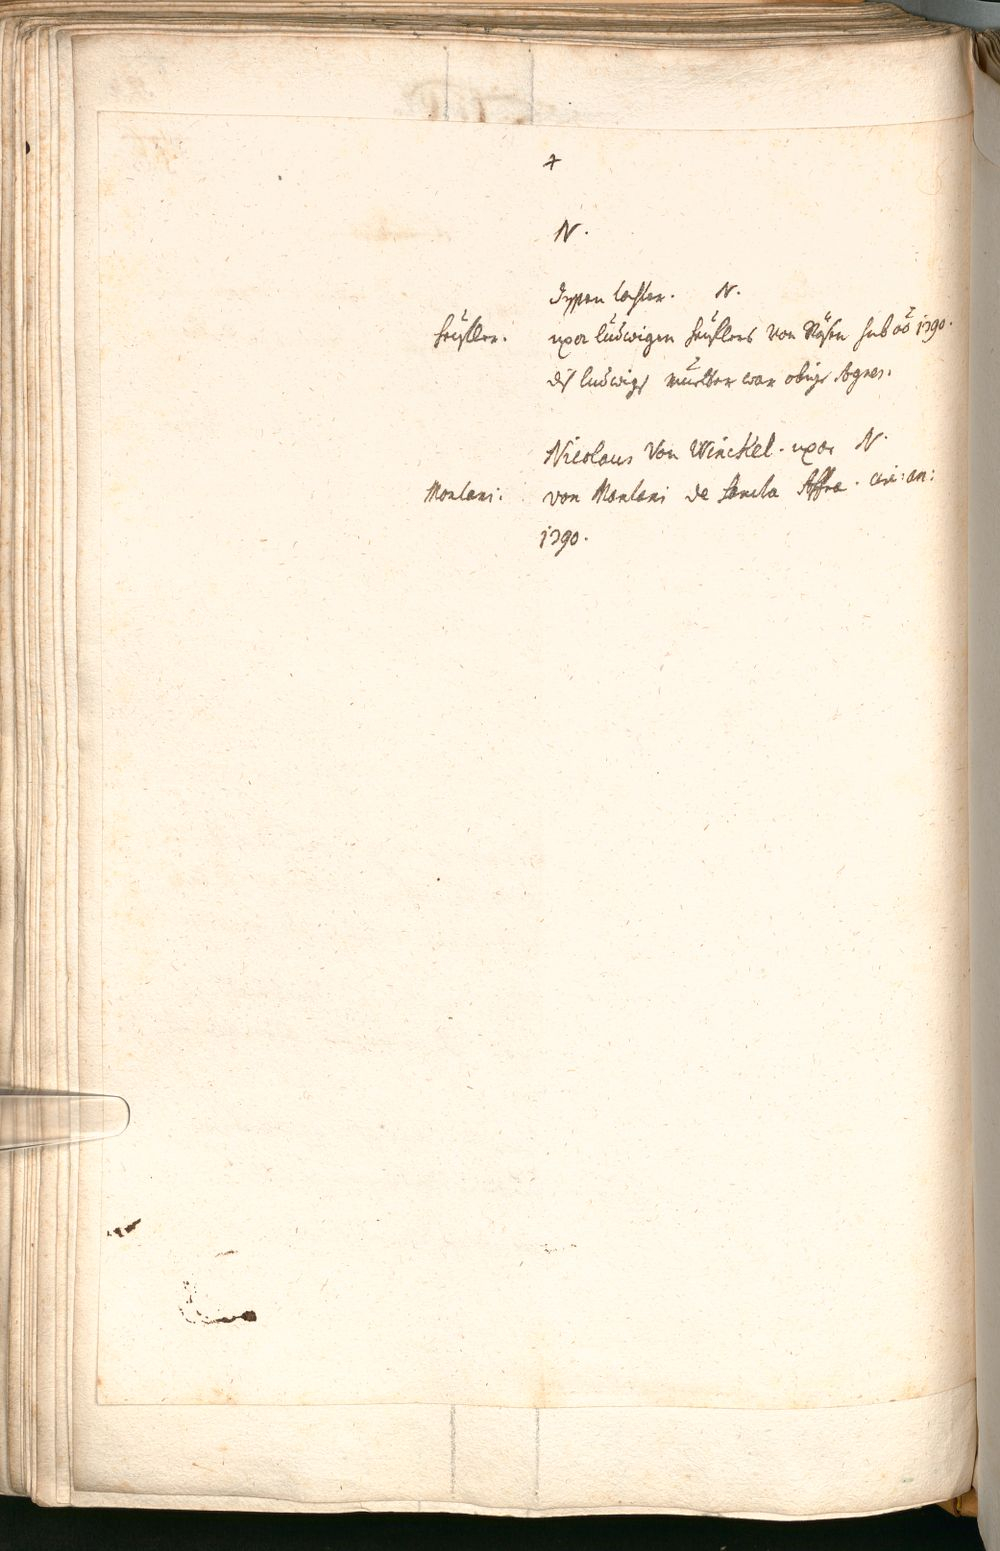 N.
dessen tochter. N.
Heüsler. uxor ludwigen Heüslers von Räsen sub ao 1390.
dis ludwigs muetter war obige Agnes.
Nicolaus von Winckel. uxor N.
Montani. von Montani de Sancta Affra. circ: an:
1390.